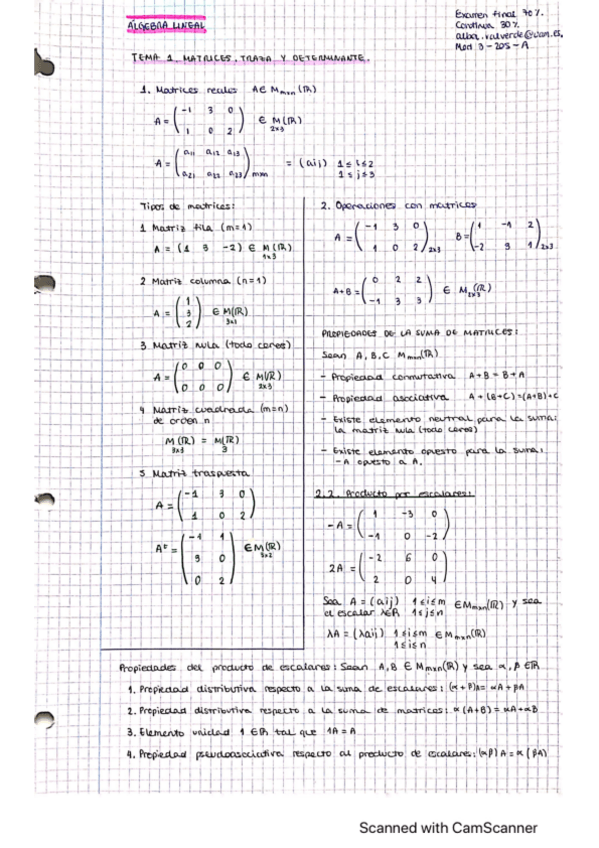 ÁLGEBRA LINEAL
Examen final 70%.
Continua 30%
alba.valverde@uam.es
Mod 3-205-A
TEMA 1. MATRICES, TRAZA Y DETERMINANTE.
1. Matrices reales A∈ Mmxn (ℝ)
A = ( -1 3 0
1 0 2 ) ∈ M(ℝ) 2x3
A = ( a11 a12 a13
a21 a22 a23 ) mxn = (aij) 1≤i≤2
1≤j≤3
Tipos de matrices:
1 Matriz fila (m=1)
A = (1 3 -2) ∈ M(ℝ) 1x3
2 Matriz columna (n=1)
A = ( 1
3
2 ) ∈ M(ℝ) 3x1
3 Matriz nula (todo ceros)
A = ( 0 0 0
0 0 0 ) ∈ M(ℝ) 2x3
4 Matriz cuadrada (m=n)
de orden n
M(ℝ) 3x3 = M(ℝ) 3
5 Matriz traspuesta
A = ( -1 3 0
1 0 2 )
Aᵗ = ( -1 1
3 0
0 2 ) ∈ M(ℝ) 3x2
2. Operaciones con matrices
A = ( -1 3 0
1 0 2 ) 2x3 B = ( 1 -1 2
-2 3 1 ) 2x3
A+B = ( 0 2 2
-1 3 3 ) ∈ M2x3(ℝ)
PROPIEDADES DE LA SUMA DE MATRICES:
Sean A, B, C Mmxn(ℝ)
- Propiedad conmutativa A+B = B+A
- Propiedad asociativa A + (B+C) = (A+B)+C
- Existe elemento neutral para la suma:
la matriz nula (todo ceros)
- Existe elemento opuesto para la suma:
-A opuesto a A.
2.2. Producto por escalares:
-A = ( 1 -3 0
-1 0 -2 )
2A = ( -2 6 0
2 0 4 )
Sea A = (aij) 1≤i≤m
1≤j≤n ∈ Mmxn(ℝ) y sea
el escalar λ∈ℝ
λA = (λaij) 1≤i≤m
1≤i≤n ∈ Mmxn(ℝ)
Propiedades del producto de escalares: Sean A, B ∈ Mmxn(ℝ) y sea α, β ∈ℝ
1. Propiedad distributiva respecto a la suma de escalares: (α+β)A = αA + βA
2. Propiedad distributiva respecto a la suma de matrices: α(A+B) = αA+αB
3. Elemento unidad 1 ∈ℝ tal que 1A = A
4. Propiedad pseudoasociativa respecto al producto de escalares: (αβ) A = α (βA)
Scanned with CamScanner